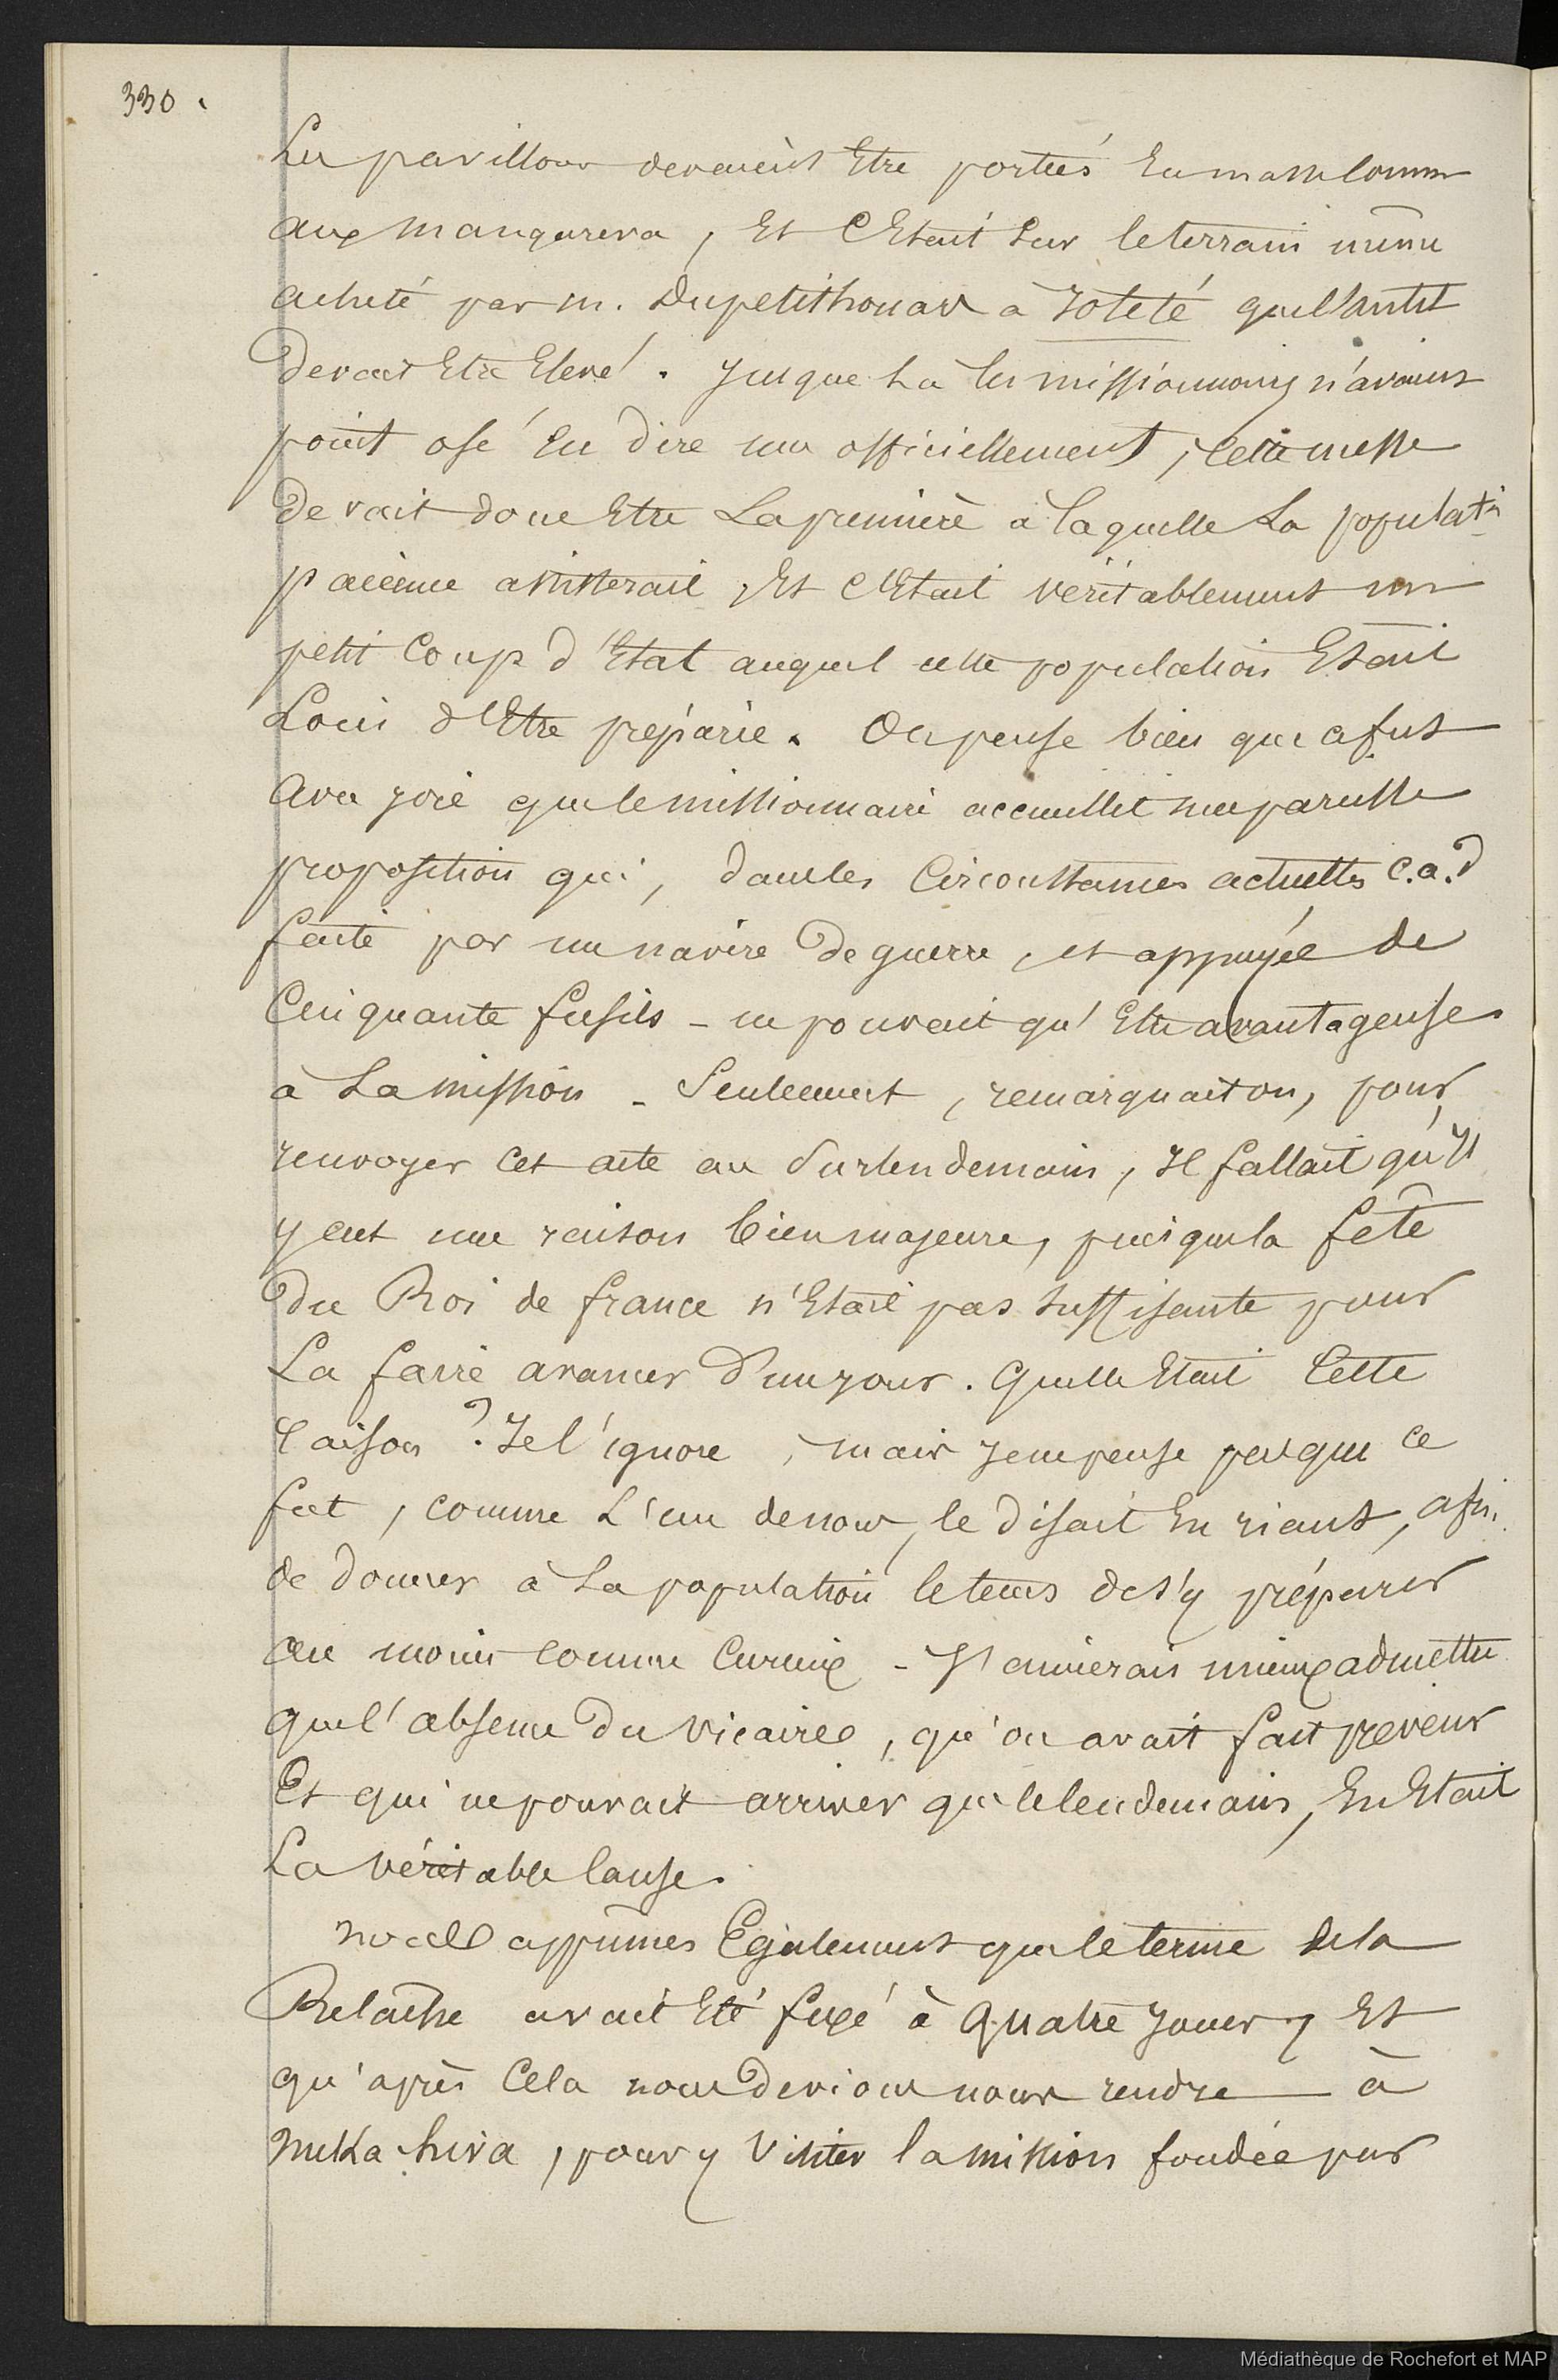 330.
Les pavillons devaient Etre portés En masse comme
aux mangareva, Et C'Etait sur le terrain même
acheté par m. Dupetithouars à Ioteté que l'autel
devait Etre Elevé. Jusque là les missionnaires n'avaient
point osé En dire une officiellement, cette messe
devait donc Etre La première à laquelle La populat.n
païenne assisterait, Et C'Etait véritablement un
petit Coup d'Etat auquel cette population Etait
Loin d'Etre préparée. On pense bien que ce fut
avec joie que le missionnaire accueillit une pareille
proposition qui, dans les Circonstances actuelles c.a.d
faite par un navire de guerre, et appuyée de
Cinquante fusils - ne pouvait qu'Etre avantageuse
à La mission - Seulement, remarquait on, pour
renvoyer cet acte au surlendemain, Il fallait qu'Il
y eut une raison bien majeure, puisque la fête
du Roi de france n'Etait pas suffisante pour
La faire avancer d'un jour. Quelle Etait Cette
raison ? Je l'ignore, mais je ne pense pas que ce
fut, comme L'un de nous, le disait En riant, afin
de donner à La population le tems de s'y préparer
au moins comme curieux - J'aimerais mieux admettre
que l'absence du vicaire, qu'on avait fait prevenir
Et qui ne pouvait arriver que le lendemain, En Etait
La véritable Cause.
nous apprimes Egalement que le terme de la
Relâche avait Eté fixé à quatre jours, Et
qu'après Cela nous devions nous rendre à
nuka-hiva, pour y visiter la mission fondée par
Médiathèque de Rochefort et MAP